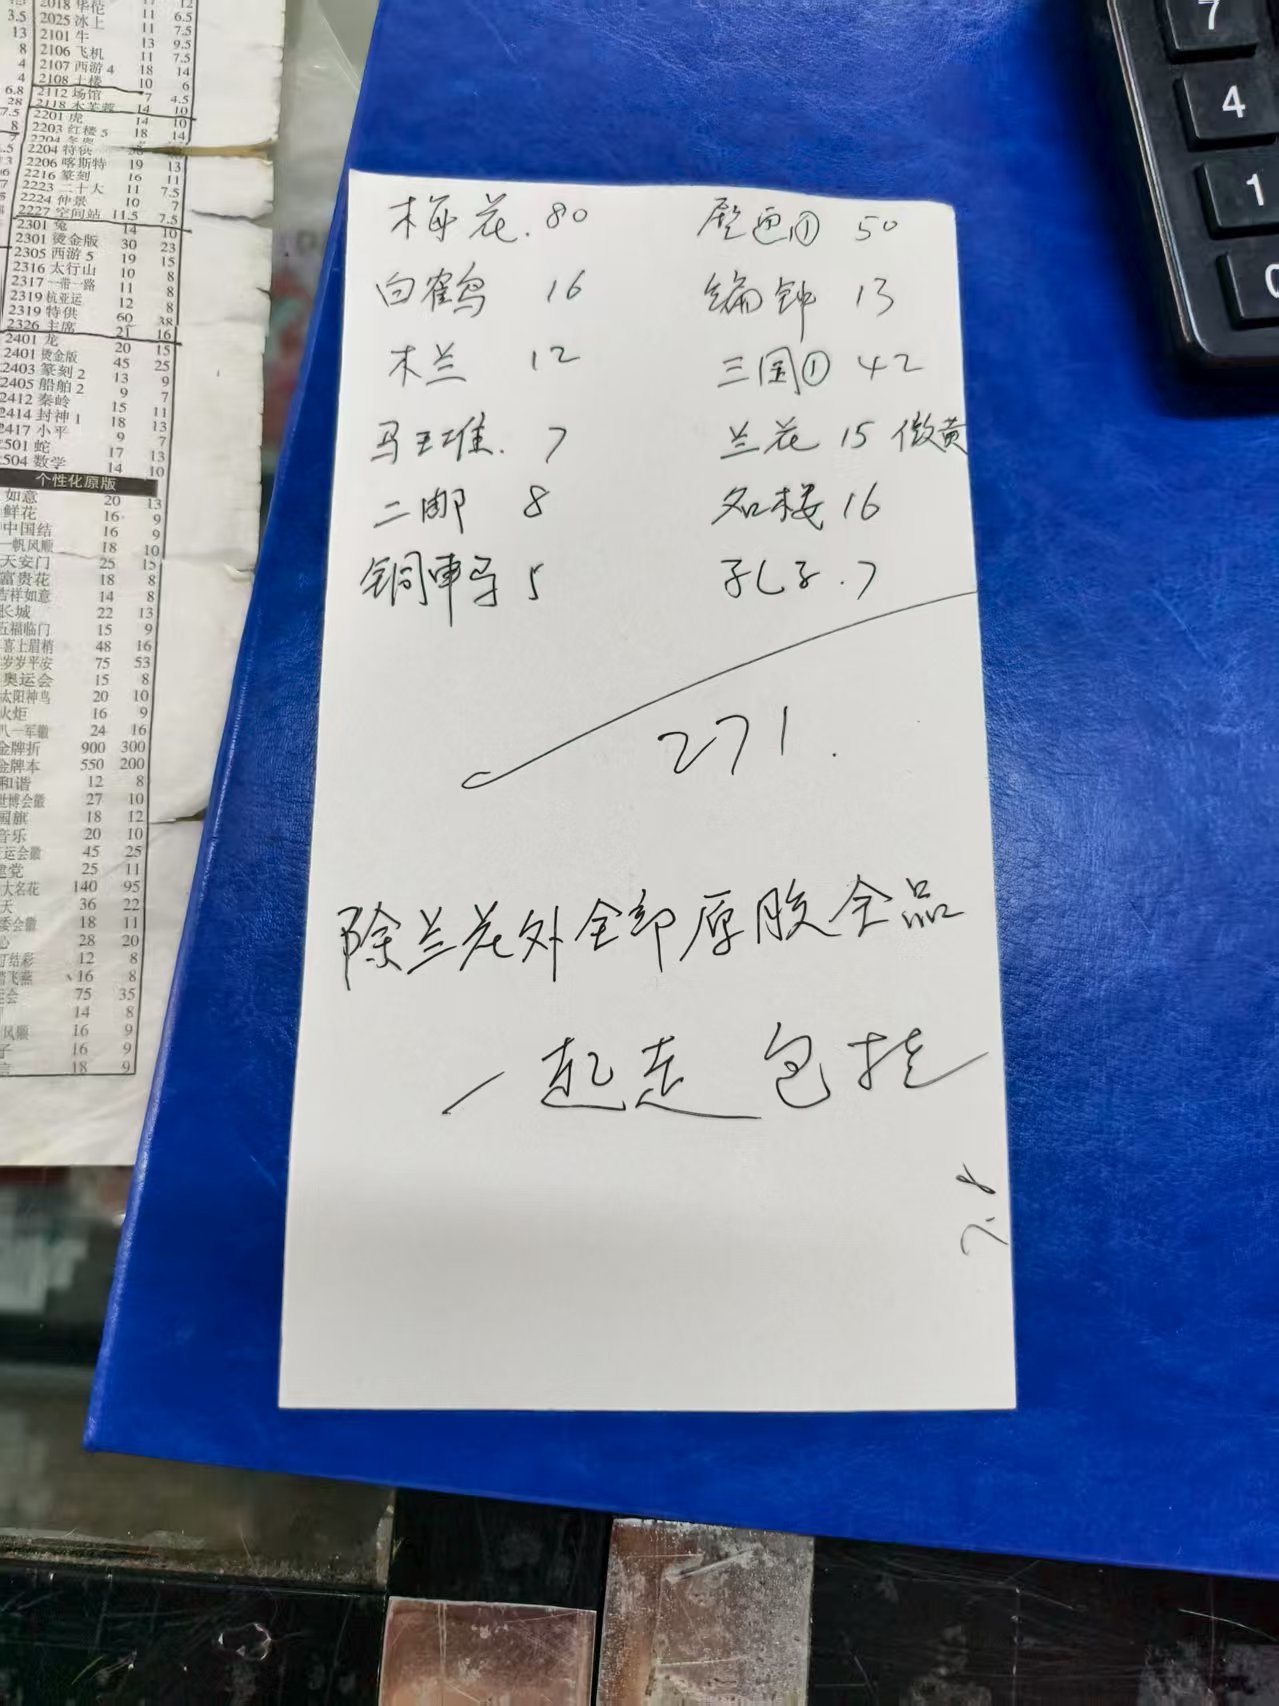 2018 华佗 17 12
2025 冰上 11 6.5
2101 牛 11 7.5
2106 飞机 13 9.5
2107 西游 4 11 7.5
2108 土楼 18 14
2112 场馆 10 6
2118 木芙蓉 7 4.5
2201 虎 14 10
2203 红楼 5 14 10
2204 特供 18 14
2206 喀斯特 19 13
2216 篆刻 16 11
2223 二十大 11 7.5
2224 仲景 10 7
2227 空间站 11.5 7.5
2301 兔 14 10
2301 烫金版 30 23
2305 西游 5 19 15
2316 太行山 10 8
2317 一带一路 11 8
2319 杭亚运 12 8
2319 特供 60 38
2326 主席 21 16
2401 龙 20 15
2401 烫金版 45 25
2403 篆刻 2 13 9
2405 船舶 2 9 7
2412 秦岭 15 11
2414 封神 1 18 13
2417 小平 9 7
2501 蛇 17 13
2504 数学 14 10
个性化原版
如意 20 13
鲜花 16 9
中国结 16 9
一帆风顺 18 10
天安门 25 15
富贵花 18 8
吉祥如意 14 8
长城 22 13
五福临门 15 9
喜上眉梢 48 16
岁岁平安 75 53
奥运会 15 8
太阳神鸟 20 10
火炬 16 9
八一军徽 24 16
金牌折 900 300
金牌本 550 200
和谐 12 8
世博会徽 27 10
国旗 18 12
音乐 20 10
运会徽 45 25
建党 25 11
大名花 140 95
天 36 22
委会徽 18 11
心 28 20
灯结彩 12 8
踏飞燕 16 8
运会 75 35
14 8
风顺 16 9
子 16 9
言 18 9
梅花. 80 殷通① 50
白鹤 16 编钟 13
木兰 12 三国① 42
马王堆. 7 兰花 15 微黄
二邮 8 名楼 16
铜車马 5 孔子. 7
271.
除兰花外全部原胶全品
一起走 包挂
7.8
7
4
1
0